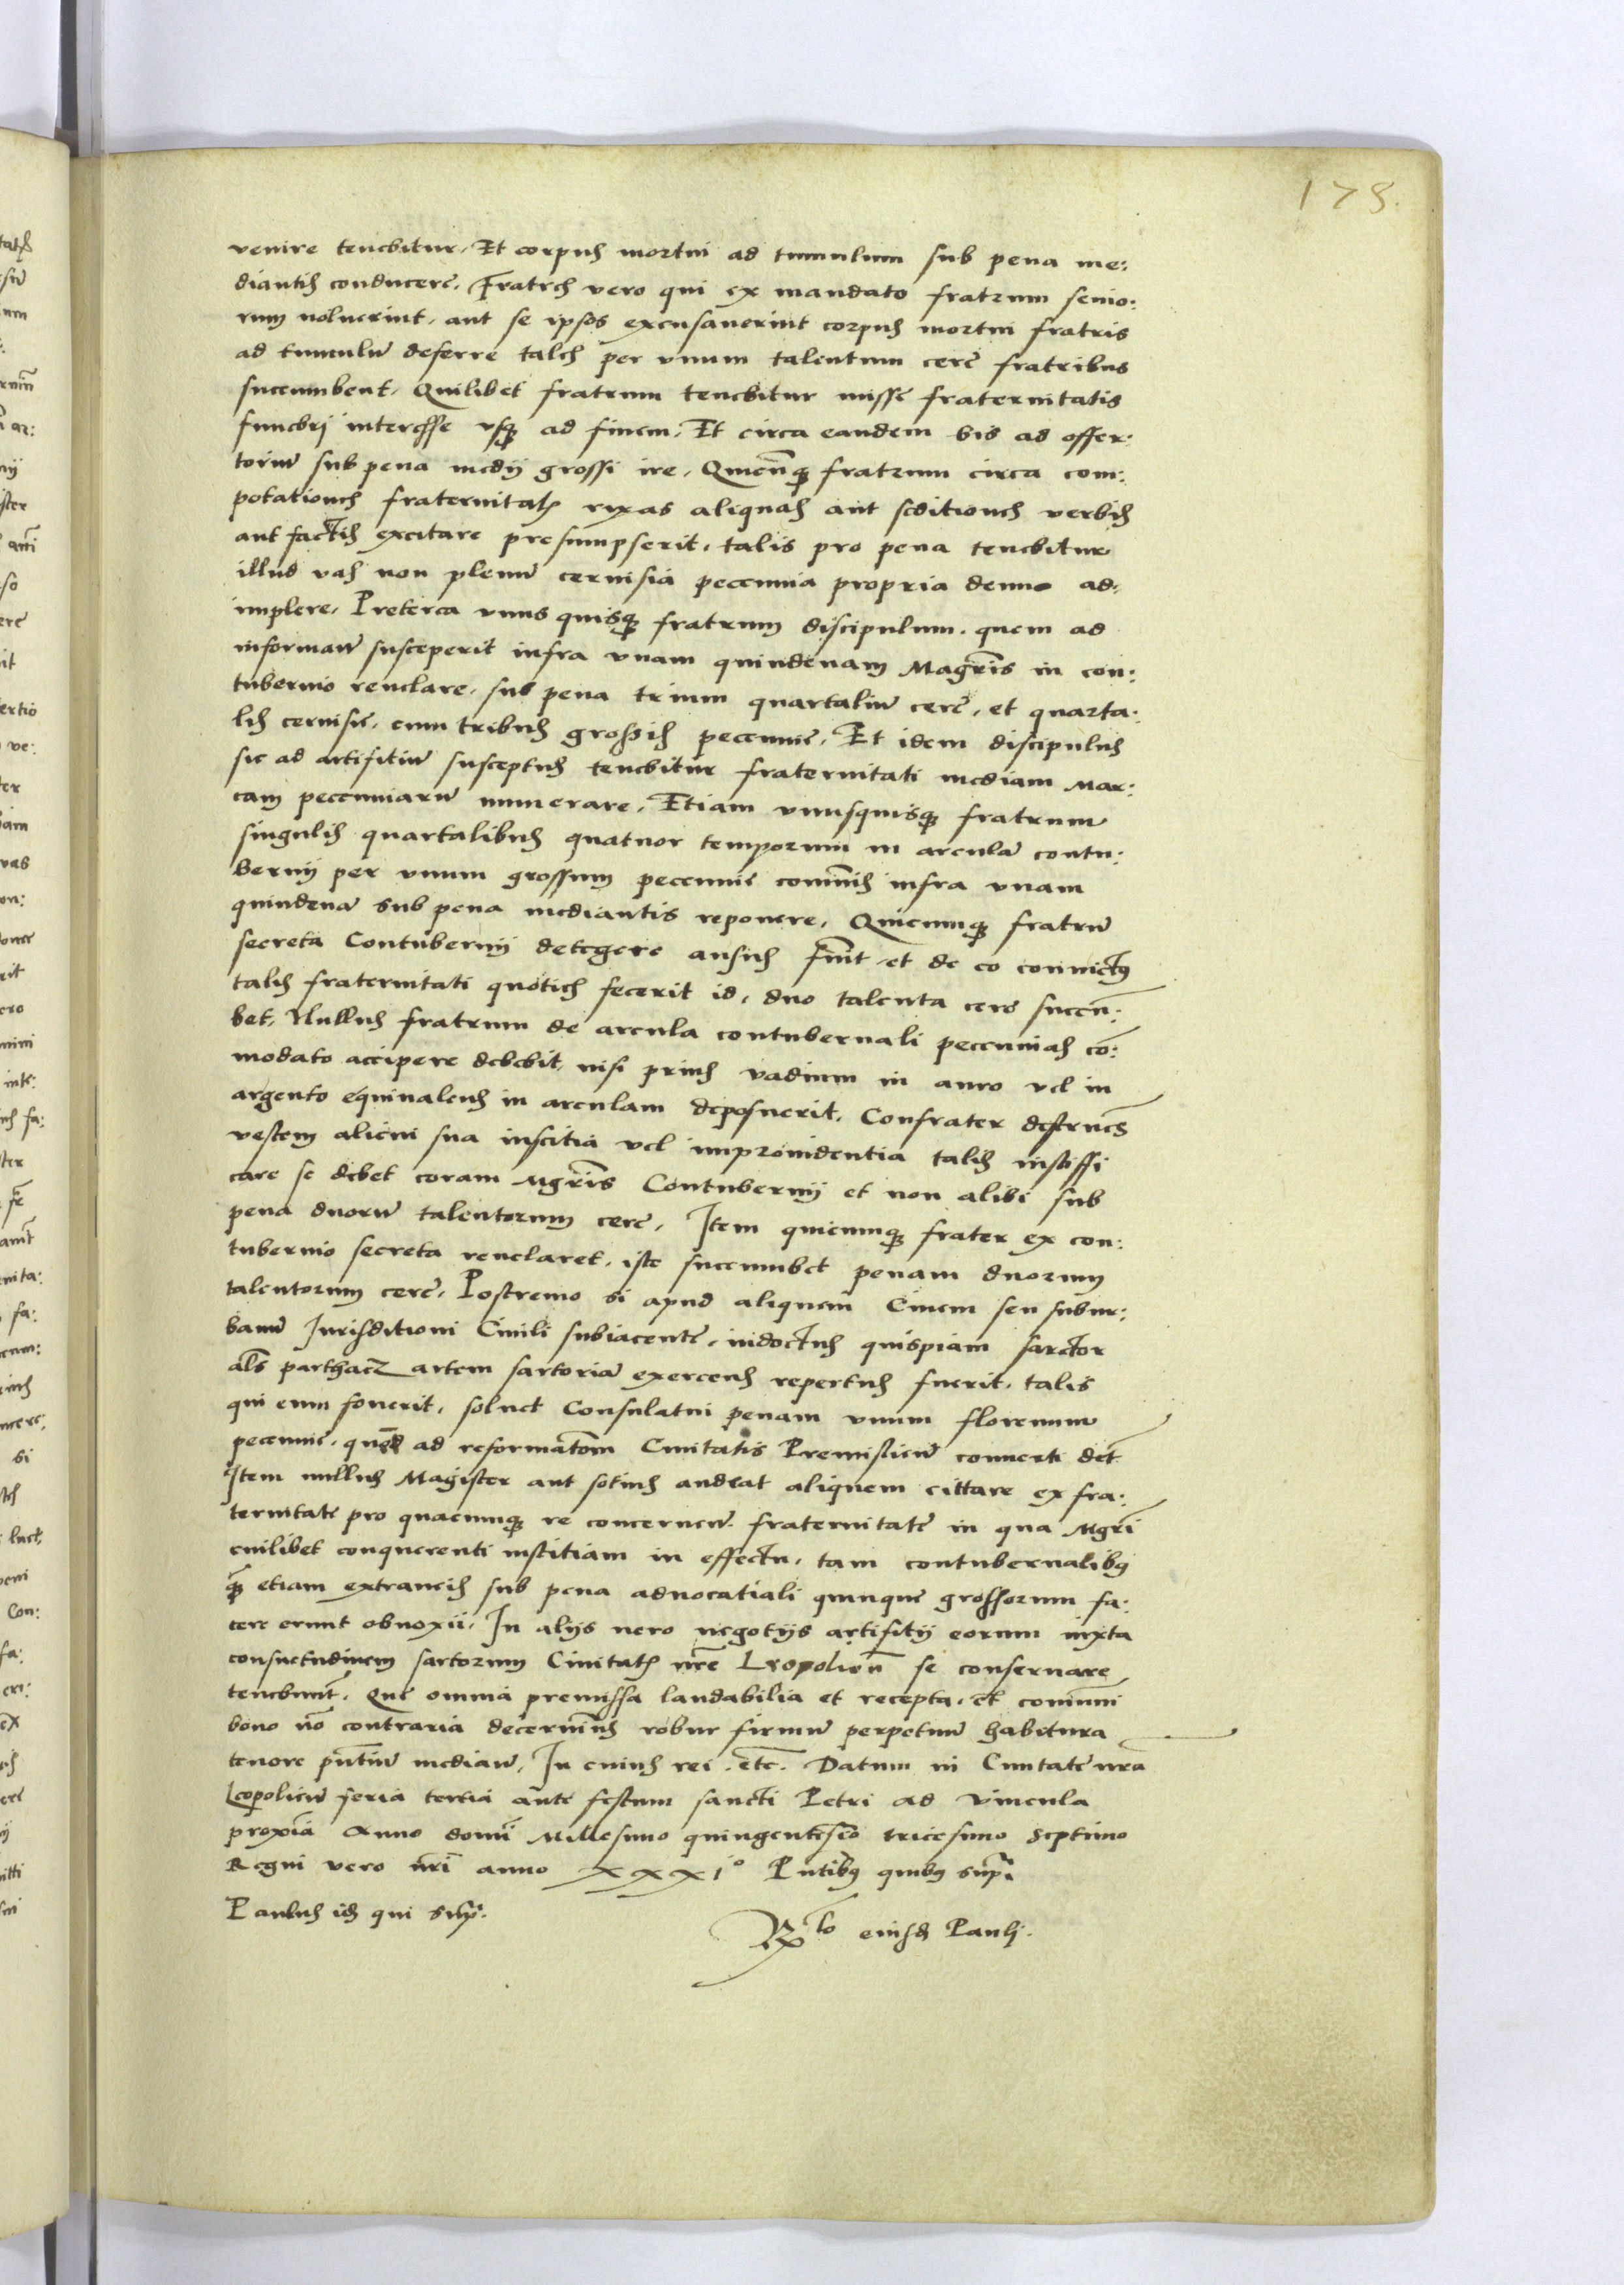 178.
venire tenebitur. Et corpus mortui ad tumulum sub pena me:
diantis conducere. Fratres vero qui ex mandato fratrum senio:
rum noluerint, aut se ipsos excusauerint corpus mortui fratris
ad tumulū deferre tales per vnum talentum cere fratribus
succumbent. Quilibet fratrum tenebitur misse fraternitatis
funebrj interesse vsq₃ ad finem. Et circa eandem bis ad offer:
toriū sub pena medij grossi ire. Quicūq₃ fratrum circa com:
potationes fraternitatꝭ rixas aliquas aut seditiones verbis
aut factis excitare presumpserit, talis pro pena tenebitur
illud vas non plenū ceruisia peccunia propria denuo ad:
implere. Preterea vnus quisq₃ fratrum discipulum, quem ad
informanū susceperit infra vnam quindenam Magr̄is in con:
tubernio reuelare, sub pena trium quartaliū cere, et quarta:
lis ceruisie, cum tribus grossis peccunie. Et idem discipulus
sic ad artifitiū susceptus tenebitur fraternitati mediam mar:
cam peccuniarū numerare. Etiam vnusquisq₃ fratrum
singulis quartalibus quatuor temporum in arculā contu:
bernij per vnum grossum peccunie com̄nis infra vnam
quindenā sub pena mediantis reponere. Quicumq₃ fratrū
secreta Contubernij detegere ausus fuīt, et de eo conuictꝰ
talis fraternitati quoties fecerit id, duo talenta cere succū:
bet. Nullus fratrum de arcula contubernali peccunias cō:
modato accipere debebit, nisi prius vadium in auro vel in
argento equiualens in arculam deposuerit. Confrater destruēs
vestem alicui sua inscitia vel improuidentia talis iustiffi
care se debet coram Mgr̄is Contubernij et non alibi sub
pena duorū talentorum cere. Item quicumq₃ frater ex con:
tubernio secreta reuelaret, iste succumbet penam duorum
talentorum cere. Postremo si apud aliquem Ciuem seu subur:
banū Jurisditioni Ciuili subiacentē, indoctus quispiam sarctor
al̄s parthacz artem sartoriā exercens repertus fuerit, talis
qui eum fouerit, soluet Consulatui penam vnum florenum
peccunie, quod ad reformatōem Ciuitatis Premislien̄ conuerti debet
Item nullus Magister aut sotius audeat aliquem cittare ex fra:
ternitate pro quacumq₃ re concernen̄ fraternitatē in qua Mgr̄i
cuilibet conquerenti iustitiam in effectu, tam contubernalibꝰ
q̄₃ etiam extraneis sub pena aduocatiali quinque grossorum fa:
cere erunt obnoxii. In alijs vero negotijs artifitij eorum iuxta
consuetudinem sartorum Ciuitatꝭ nr̄e Leopolien̄ se conseruare
tenebunt̄. Que omnia premissa laudabilia et recepta, et com̄uni
bono nō contraria decernim̄s robur firmū perpetuū habitura
tenore pn̄tiū median̄. In cuius rei. etc. Datum in Ciuitate nr̄a
Leopolien̄ feria tertia ante festum sancti Petri ad Vincula
proxīa Anno domī Millesimo quingentesīo tricesimo septimo
Regni vero nr̄i anno XXXI° Pn̄tibꝰ quibꝰ sup̄.
Paulus id₃ qui sup̄.
Rlo eiusd₃ Paulj.